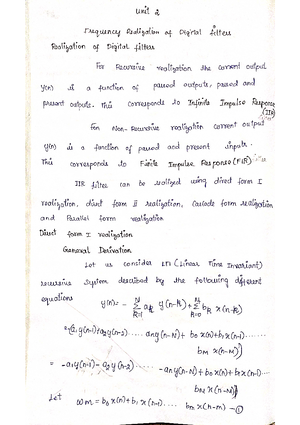 Unit 2
Frequency Realization of Digital filters
Realization of Digital filters
For Recursive realization the current output
y(n) is a function of passed outputs, passed and
present outputs. This corresponds to Infinite Impulse Response
(IIR)
For Non-Recursive realization current output
y(n) is a function of passed and present inputs.
This corresponds to Finite Impulse Response (FIR)
IIR filter can be realized using direct form I
realization, direct form II realization, Cascade form realization
and Parallel form realization
Direct form I realization
General Derivation
Let us consider LTI (Linear Time Invariant)
recursive System described by the following different
equations y(n) = - Σ k=1 N ak y(n-k) + Σ k=0 M bk x(n-k)
a1y(n-1) + a2y(n-2) ...... any(n-N) + b0x(n) + b1x(n-1) ......
bM x(n-M)
= -a1y(n-1) - a2y(n-2) ...... -any(n-N) + b0x(n) + b1x(n-1) ....
bM x(n-M)
Let ωm = b0x(n) + b1x(n-1) ...... bm x(n-m) - ①